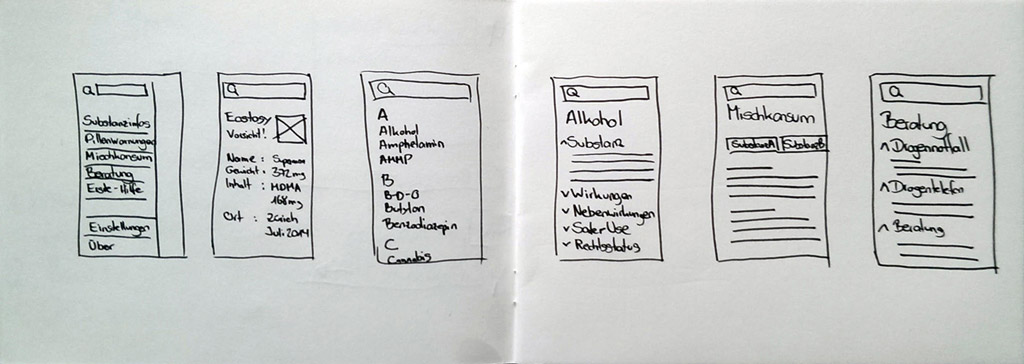 Substanzinfos
Pillenwarnungen
Mischkonsum
Beratung
Erste-Hilfe
Einstellungen
Über
Ecstasy
Vorsicht!
Name : Superman
Gewicht : 372mg
Inhalt : MDMA
168mg
Ort : Zürich
Juli 2014
A
Alkohol
Amphetamin
AMMP
B
B-D-B
Butylon
Benzodiazepin
C
Cannabis
Alkohol
Substanz
Wirkungen
Nebenwirkungen
Safer Use
Rechtsstatus
Mischkonsum
SubstanzA SubstanzB
Beratung
Drogennotfall
Drogentelefon
Beratung